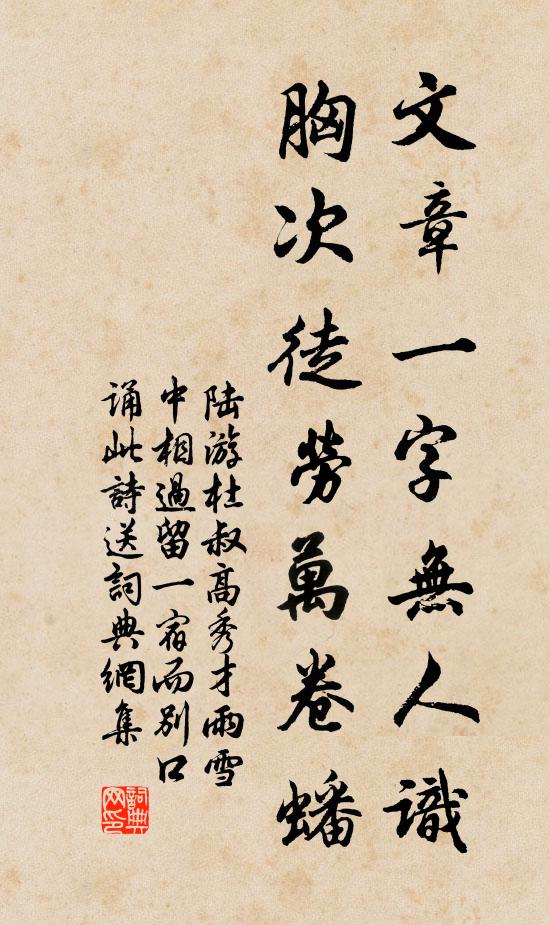 文章一字無人識
胸次徒勞萬卷蟠
陸游杜叔高秀才雨雪
中相過留一宿而別口
誦此詩送詞典網集
詞典网印